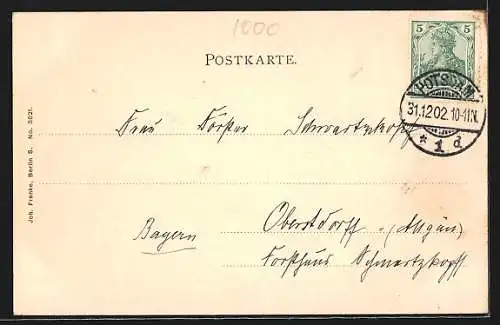 1000
5 5
POSTKARTE.
POTSDAM
31.12.02.10-11N.
* 1 d
Frau Förster Schwartzkopf
Oberstdorff (Allgäu)
Bayern
Forsthaus Schwartzkopff
Joh. Franke, Berlin S. No. 3021.